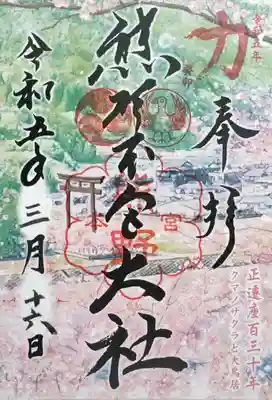 令和五年
力
奉拝
正遷座百三十年
クマノサクラと大鳥居
熊野本宮大社
令和五年三月十六日